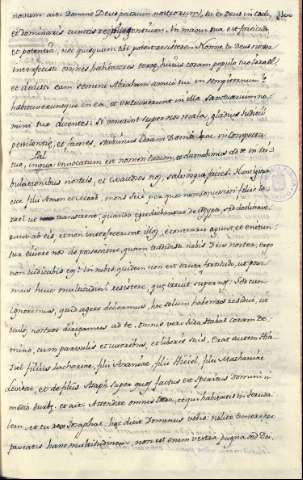 nostrum ait: Domine Deus patrum nostrorum, tu es Deus in Caelo,
et dominaris cunctis regnis gentium. In manu tua est fortitudo
et potentia, nec quisquam tibi potest resistere. Nonne tu Deus noster
interfecisti omnes habitatores terrae huius coram populo tuo Israël,
et dedisti eam semini Abraham amici tui in sempiternum?
habitaveruntque in ea, et extruxerunt in illa sanctuarium no-
mini tuo dicentes: Si irruerint super nos mala, gladius iudicii,
pestilentia, et fames, stabimus coram Domo hac in conspectu
tuo, in qua invocatum est nomen tuum, et clamabimus ad te in tri-
bulationibus nostris, et exaudies nos, salvosque facies. Nunc igitur
ecce filii Amon et Moab, mons Seir per quos non concessisti filiis Is-
rael ut transirent, quando egrediebantur de Aegypto, sed declinave-
runt ab eis, et non interfecerunt illos, e contrario agunt et nitun-
tur eiicere nos de possessione, quam tradidisti nobis. Deus noster, ergo
non iudicabis eos? In nobis quidem non est tanta fortitudo, ut possi-
mus huic multitudini resistere, quae irruit super nos. Sed cum
ignoremus, quid agere debeamus, hoc solum habemus residui, ut
oculos nostros dirigamus ad te. Omnis vero Iuda stabat coram Do-
mino, cum parvulis et uxoribus, et liberis suis. Erat autem Iha-
ziel filius Zachariae, filii Banaiae, filii Hiehiel, filii Mathaniae
levites, et de filiis Asaph super quem factus est Spiritus Domini in
medio turbae, et ait: Attendite omnis Iuda, et qui habitatis in Ierusa-
lem, et tu rex Iosaphat, haec dicit Dominus vobis: nolite timere nec
paveatis hanc multitudinem, non est enim vestra pugna sed Dei.